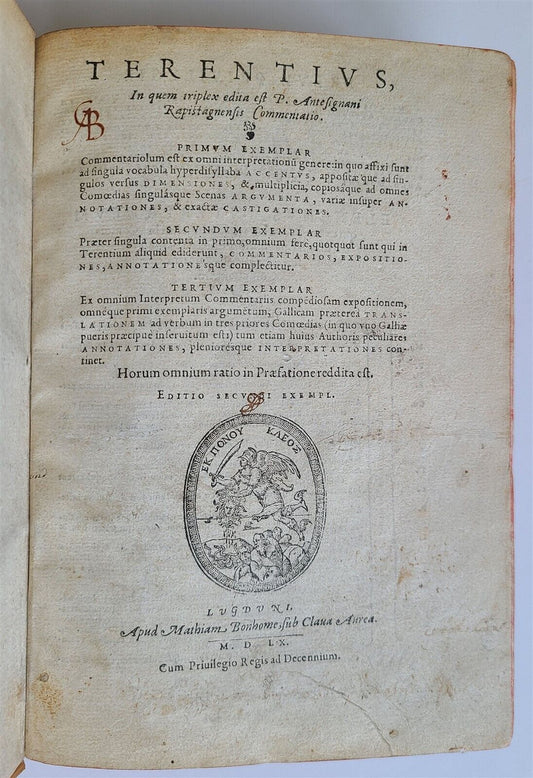 TERENTIVS,
In quem triplex edita est P. Antesignani
Rapistagnensis Commentatio.
PRIMVM EXEMPLAR
Commentariolum est ex omni interpretationũ genere: in quo affixi sunt
ad singula vocabula hyperdisyllaba ACCENTVS, appositæque ad sin-
gulos versus DIMENSIONES, &, multiplicia, copiosáque ad omnes
Comœdias singulásque Scenas ARGVMENTA, variæ insuper AN-
NOTATIONES, & exactæ CASTIGATIONES.
SECVNDVM EXEMPLAR
Præter singula contenta in primo, omnium fere, quotquot sunt qui in
Terentium aliquid ediderunt, COMMENTARIOS, EXPOSITIO-
NES, ANNOTATIONE'sque complectitur.
TERTIVM EXEMPLAR
Ex omnium Interpretum Commentariis compẽdiosam expositionem,
omnéque primi exemplaris argumẽtum, Gallicam præterea TRANS-
LATIONEM ad verbum in tres priores Comœdias (in quo vno Galliæ
pueris præcipue inseruitum est) tum etiam huius Authoris peculiares
ANNOTATIONES, pleniorésque INTERPRETATIONES con-
tinet.
Horum omnium ratio in Præfatione reddita est.
EDITIO SECVNDI EXEMPL.
ΕΚ ΠΟΝΟΥ ΚΛΕΟΣ
LVGDVNI,
Apud Mathiam Bonhome, sub Claua Aurea.
M. D LX.
Cum Priuilegio Regis ad Decennium.